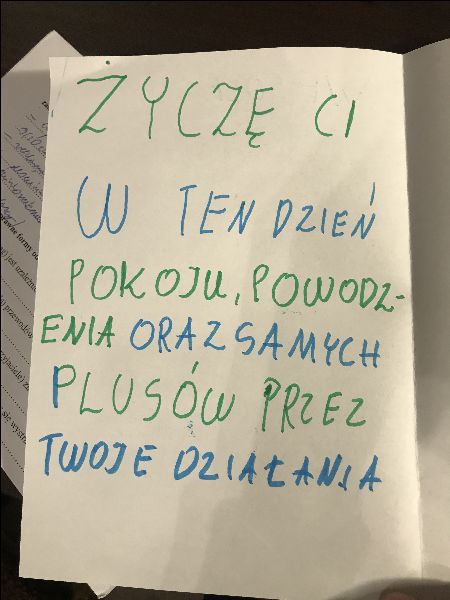 ŻYCZĘ CI
W TEN DZIEŃ
POKOJU, POWODZ-
ENIA ORAZ SAMYCH
PLUSÓW PRZEZ
TWOJE DZIAŁANIA